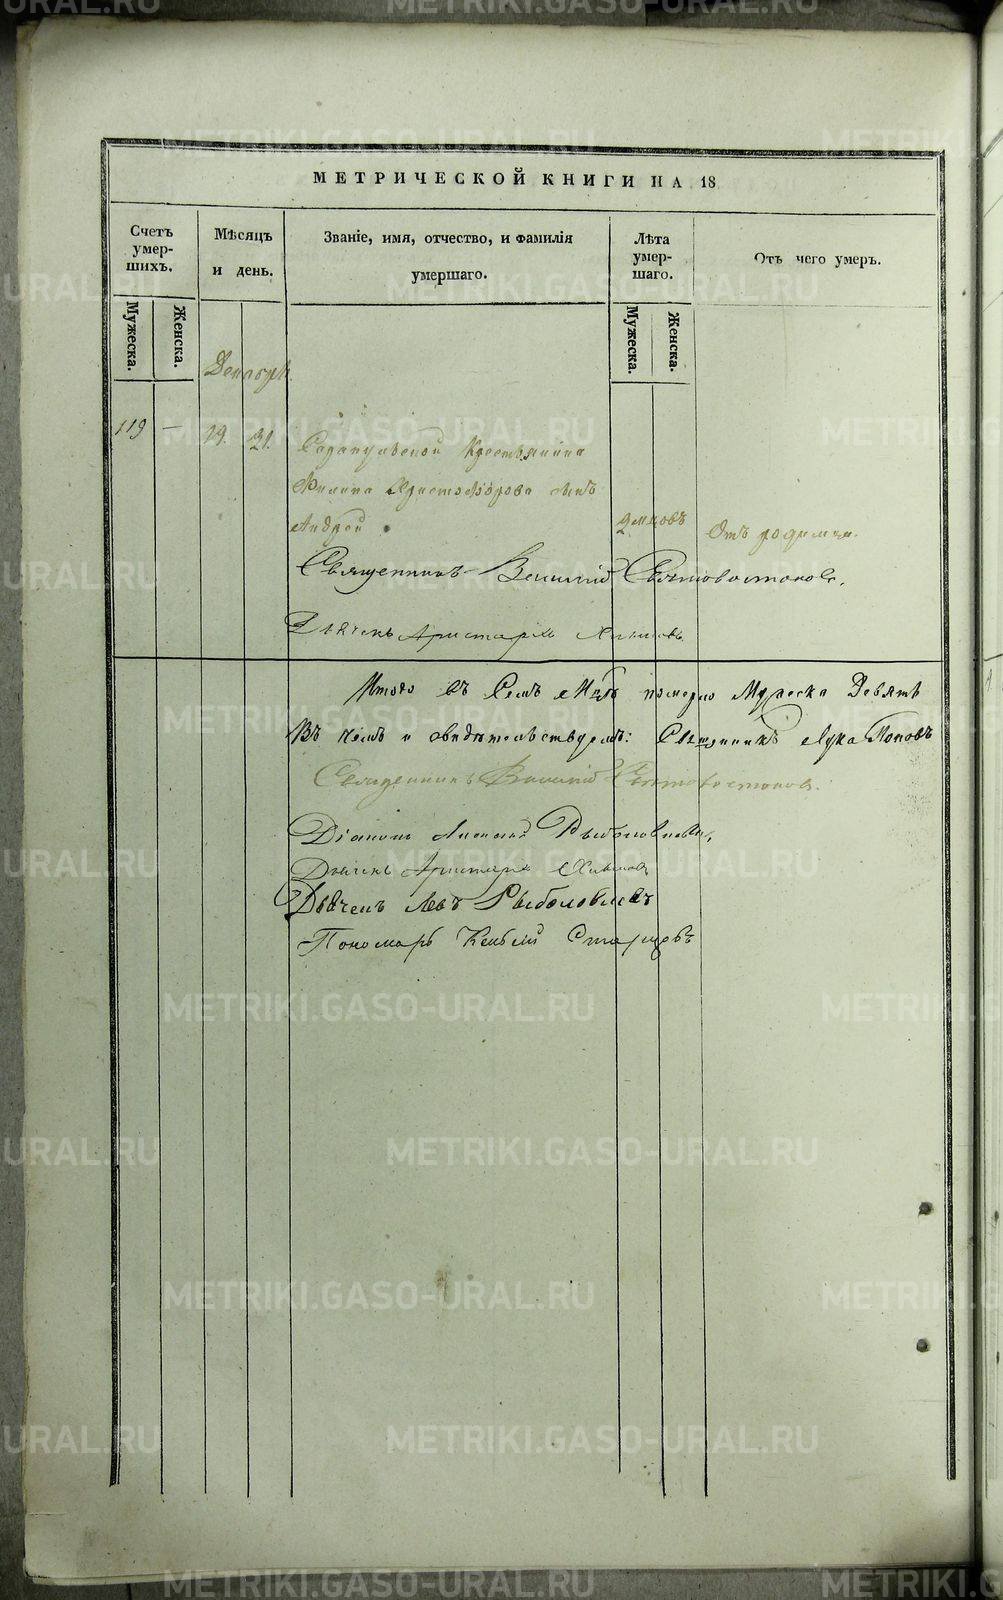 МЕТРИЧЕСКОЙ КНИГИ НА 18
Счетъ умер-шихъ.
Мѣсяцъ и день.
Званіе, имя, отчество, и фамилія умершаго.
Лѣта умер-шаго.
Отъ чего умеръ.
Мужеска.
Женска.
Мужеска.
Женска.
Декабря
119 — 29. 31. Сарапульской Крестьянина
Филипа Христофорова сынъ
Андрей 2 мцовъ Отъ родимча.
Священникъ Василій Святовостоковъ.
Дьячекъ Аристархъ
Итого въ Семъ Мцѣ померло Мужеска Девять
Въ чемъ и свидѣтельствуемъ: Священникъ Лука Поповъ
Священникъ Василій Святовостоковъ.
Діаконъ Рыболовлевъ,
Дьячекъ Аристархъ
Дьячекъ Левъ Рыболовлевъ
Пономарь Старцевъ
METRIKI.GASO-URAL.RU